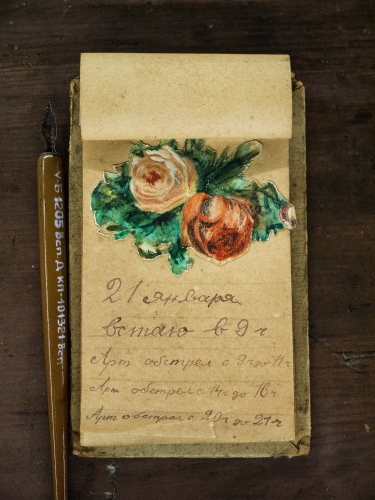 21 января
встаю в 9 ч
Арт обстрел с 9ч до 11ч
Арт обстрел с 14ч до 16ч.
Арт обстрел с 20ч до 21ч
УВ 1205 Всп. Д КП-101321 Всп.